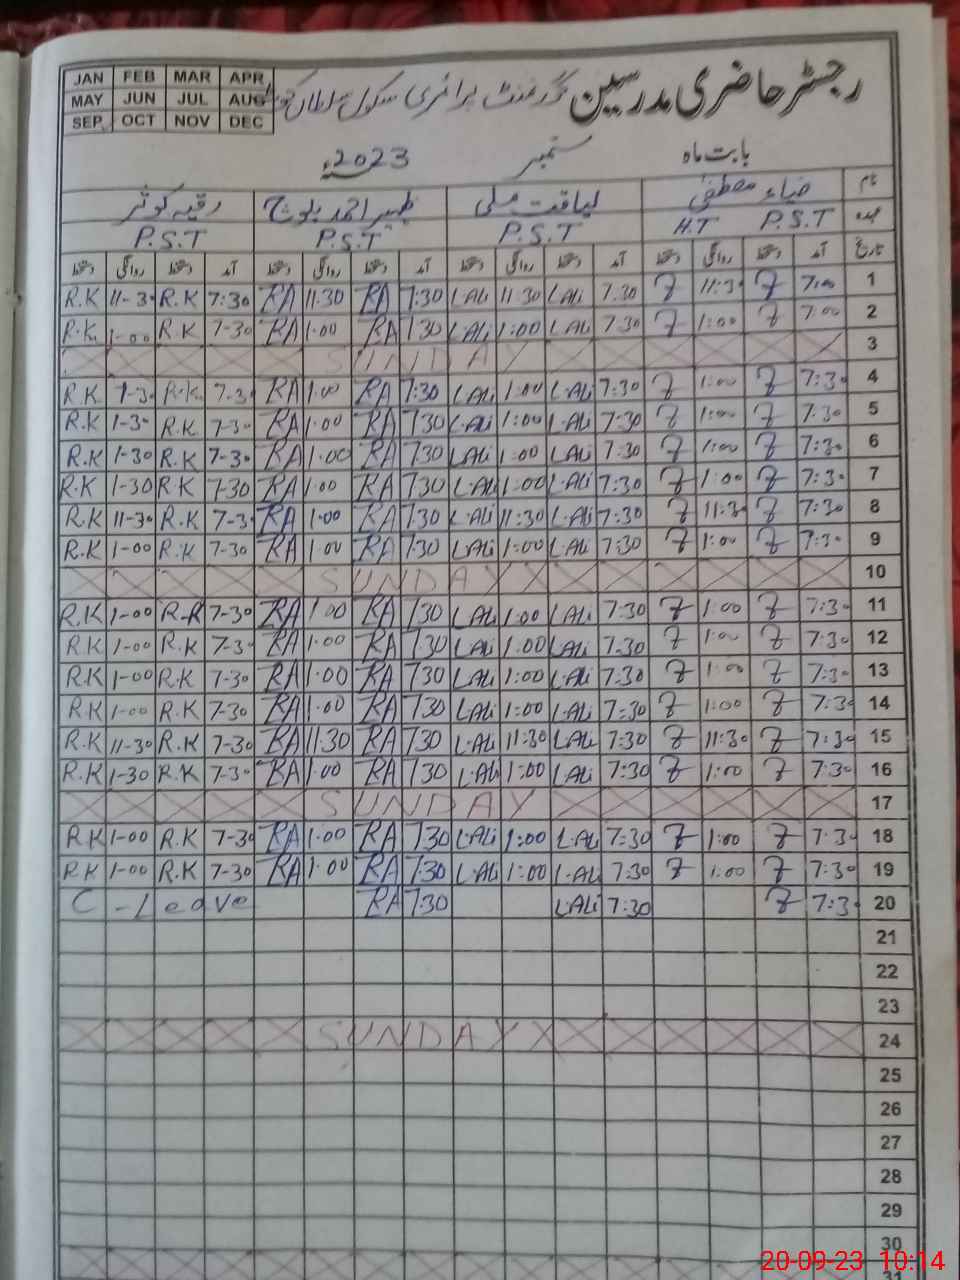 JAN FEB MAR APR
MAY JUN JUL AUG
SEP OCT NOV DEC
رجسٹر حاضری مدرسین گورنمنٹ پرائمری سکول سلطان
بابت ماہ ستمبر 2023ء
نام ضیاء مصطفیٰ لیاقت علی ظہیر احمد بلوچ رقیہ کوثر
عہدہ P.S.T H.T P.S.T P.S.T P.S.T
تاریخ آمد دستخط روانگی دستخط آمد دستخط روانگی دستخط آمد دستخط روانگی دستخط آمد دستخط روانگی دستخط
R.K 11-30 R.K 7:30 RA 11:30 RA 7:30 L.ALi 11:30 L.ALi 7:30 Z 11:30 Z 7:00 1
R.K 1-00 R.K 7-30 RA 1:00 RA 7:30 L.ALi 1:00 L.ALi 7:30 Z 1:00 Z 7:00 2
SUNDAY 3
R.K 1-30 R.K 7-30 RA 1:00 RA 7:30 L.ALi 1:00 L.ALi 7:30 Z 1:00 Z 7:30 4
R.K 1-30 R.K 7-30 RA 1:00 RA 7:30 L.ALi 1:00 L.ALi 7:30 Z 1:00 Z 7:30 5
R.K 1-30 R.K 7-30 RA 1:00 RA 7:30 L.ALi 1:00 L.ALi 7:30 Z 1:00 Z 7:30 6
R.K 1-30 R.K 7-30 RA 1:00 RA 7:30 L.ALi 1:00 L.ALi 7:30 Z 1:00 Z 7:30 7
R.K 11-30 R.K 7-30 RA 1:00 RA 7:30 L.ALi 11:30 L.ALi 7:30 Z 11:30 Z 7:30 8
R.K 1-00 R.K 7-30 RA 1:00 RA 7:30 L.ALi 1:00 L.ALi 7:30 Z 1:00 Z 7:30 9
SUNDAY 10
R.K 1-00 R.K 7-30 RA 1:00 RA 7:30 L.ALi 1:00 L.ALi 7:30 Z 1:00 Z 7:30 11
R.K 1-00 R.K 7-30 RA 1:00 RA 7:30 L.ALi 1:00 L.ALi 7:30 Z 1:00 Z 7:30 12
R.K 1-00 R.K 7-30 RA 1:00 RA 7:30 L.ALi 1:00 L.ALi 7:30 Z 1:00 Z 7:30 13
R.K 1-00 R.K 7-30 RA 1:00 RA 7:30 L.ALi 1:00 L.ALi 7:30 Z 1:00 Z 7:30 14
R.K 11-30 R.K 7-30 RA 11:30 RA 7:30 L.ALi 11:30 L.ALi 7:30 Z 11:30 Z 7:30 15
R.K 1-30 R.K 7-30 RA 1:00 RA 7:30 L.ALi 1:00 L.ALi 7:30 Z 1:00 Z 7:30 16
SUNDAY 17
R.K 1-00 R.K 7-30 RA 1:00 RA 7:30 L.ALi 1:00 L.ALi 7:30 Z 1:00 Z 7:30 18
R.K 1-00 R.K 7-30 RA 1:00 RA 7:30 L.ALi 1:00 L.ALi 7:30 Z 1:00 Z 7:30 19
C - Leave RA 7:30 L.ALi 7:30 Z 7:30 20
21
22
23
SUNDAY 24
25
26
27
28
29
30
31
20-09-23 10:14